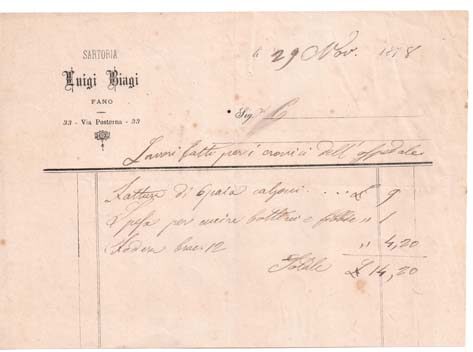 SARTORIA
Luigi Biagi
FANO
33 - Via Posterna - 33
li 29 Nov. 1878
Sigr
Lavori fatti per i cronici dell'ospedale
Fattura di 6 paia calzoni . . . £ 9
Spesa per cucire bottoni e fibbie " 1
Fodera brac. 12 " 4,20
Totale £ 14,20